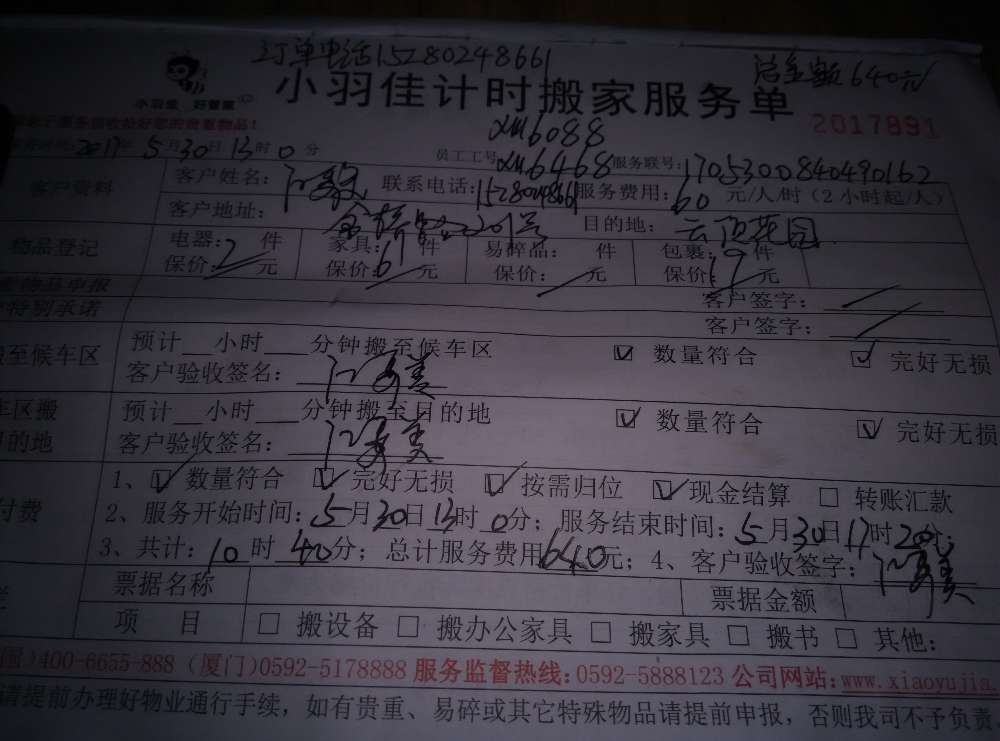 订单电话15280248661 总金额640元
小羽佳 好管家
小羽佳计时搬家服务单
2017891
xm6088
2017年5月30日13时0分 员工工号 xm6468 服务联号:1705300840490162
客户资料 客户姓名: 联系电话:15280248661 服务费用:60元/人/时(2小时起/人)
客户地址: 201号 目的地:云顶花园
物品登记 电器:2件 家具:6件 易碎品: 件 包裹:19件
保价: 元 保价: 元 保价: 元 保价: 元
物品申报 客户签字:
特别承诺 客户签字:
搬至候车区 预计__小时___分钟搬至候车区 ☑ 数量符合 ☑ 完好无损
客户验收签名:
车区搬 预计__小时___分钟搬至目的地 ☑ 数量符合 ☑ 完好无损
目的地 客户验收签名:
1、☑ 数量符合 ☑ 完好无损 ☑ 按需归位 ☑ 现金结算 □ 转账汇款
付费 2、服务开始时间:5月30日13时0分; 服务结束时间:5月30日17时20分;
3、共计:10时40分; 总计服务费用640元; 4、客户验收签字:
票据名称 票据金额
项 目 □ 搬设备 □ 搬办公家具 □ 搬家具 □ 搬书 □ 其他:
国)400-6655-888 (厦门)0592-5178888 服务监督热线:0592-5888123 公司网站:www.xiaoyujia.
请提前办理好物业通行手续,如有贵重、易碎或其它特殊物品请提前申报,否则我司不予负责